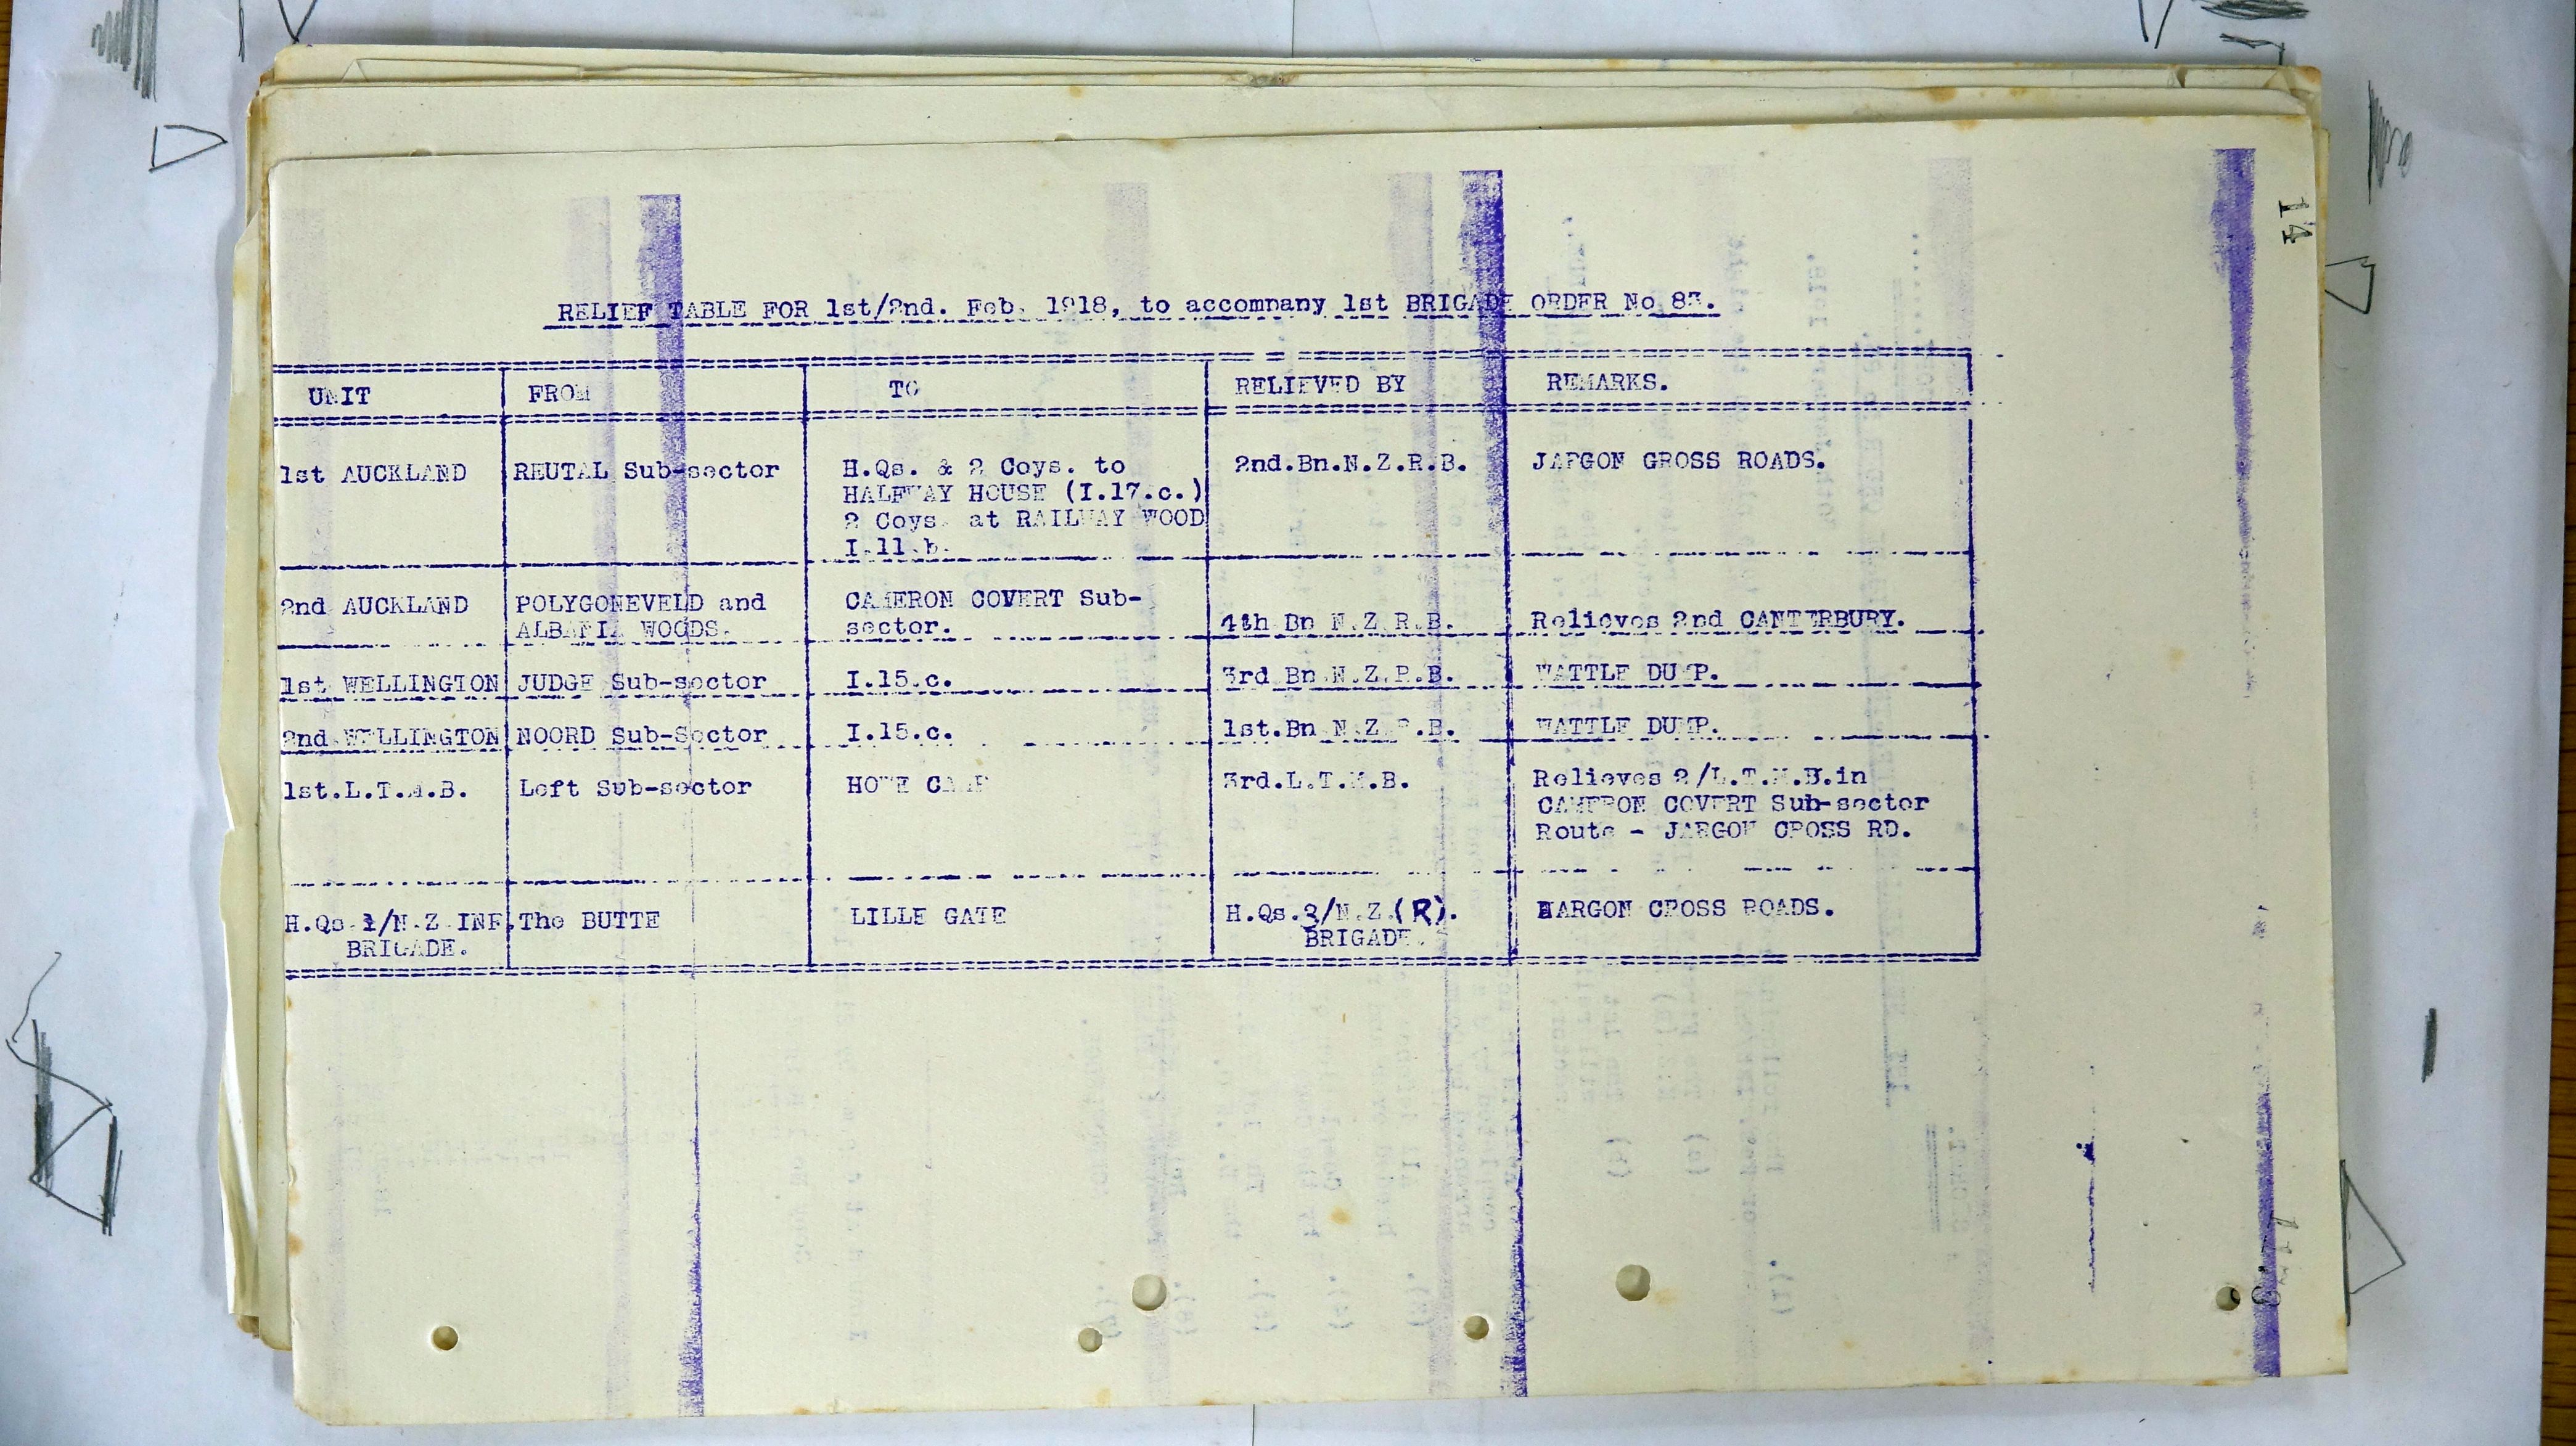 14
RELIEF TABLE FOR 1st/2nd. Feb. 1918, to accompany 1st BRIGADE ORDER No 83.
UNIT FROM TO RELIEVED BY REMARKS.
1st AUCKLAND REUTAL Sub-sector H.Qs. & 2 Coys. to 2nd.Bn.N.Z.R.B. JARGON CROSS ROADS.
HALFWAY HOUSE (I.17.c.)
2 Coys. at RAILWAY WOOD
I.11.b.
2nd AUCKLAND POLYGONEVELD and CAMERON COVERT Sub-
ALBANIA WOODS. sector. 4th Bn N.Z.R.B. Relieves 2nd CANTERBURY.
1st WELLINGTON JUDGE Sub-sector I.15.c. 3rd Bn.N.Z.R.B. WATTLE DUMP.
2nd WELLINGTON NOORD Sub-Sector I.15.c. 1st.Bn N.Z.R.B. WATTLE DUMP.
1st.L.T.M.B. Left Sub-sector HOWE CAMP 3rd.L.T.M.B. Relieves 2/L.T.M.B.in
CAMERON COVERT Sub-sector
Route - JARGON CROSS RD.
H.Qs.1/N.Z.INF. The BUTTE LILLE GATE H.Qs.3/N.Z.(R). JARGON CROSS ROADS.
BRIGADE. BRIGADE.